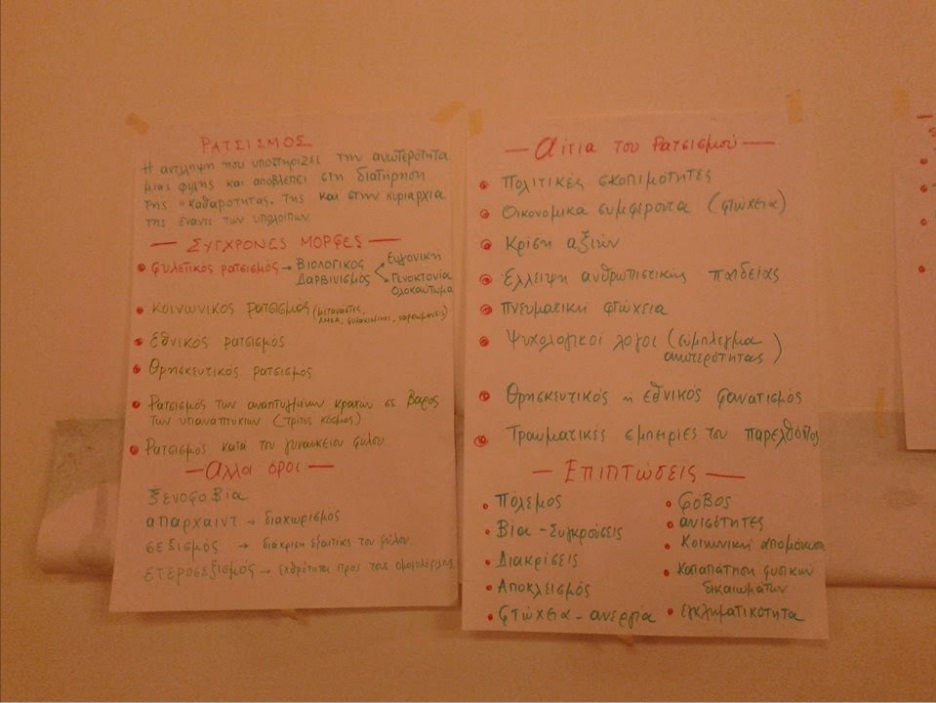 ΡΑΤΣΙΣΜΟΣ
Η αντίληψη που υποστηρίζει την ανωτερότητα
μιας φυλής και αποβλέπει στη διατήρηση
της "καθαρότητας" της και στην κυριαρχία
της έναντι των υπολοίπων.
— ΣΥΓΧΡΟΝΕΣ ΜΟΡΦΕΣ —
• Φυλετικός ρατσισμός → ΒΙΟΛΟΓΙΚΟΣ ΔΑΡΒΙΝΙΣΜΟΣ < Ευγονική
Γενοκτονία Ολοκαύτωμα
• Κοινωνικός ρατσισμός (μετανάστες,
ΑΜΕΑ,
• Εθνικός ρατσισμός
• Θρησκευτικός ρατσισμός
• Ρατσισμός των αναπτυγμένων κρατών σε βάρος
των υπανάπτυκτων (τρίτος κόσμος)
• Ρατσισμός κατά του γυναικείου φύλου
— Άλλοι όροι —
Ξενοφοβία
απαρχαιντ → διαχωρισμός
σεξισμός → διάκριση εξαιτίας του φύλου.
ετεροσεξισμός → εχθρότητα προς τους
— Αίτια του Ρατσισμού —
• Πολιτικές σκοπιμότητες
• Οικονομικά συμφέροντα (φτώχεια)
• Κρίση αξιών
• Έλλειψη ανθρωπιστικής παιδείας
• Πνευματική φτώχεια
• Ψυχολογικοί λόγοι (σύμπλεγμα
ανωτερότητας)
• Θρησκευτικός ή εθνικός φανατισμός
• Τραυματικές εμπειρίες του παρελθόντος
— Επιπτώσεις —
• Πόλεμος
• Βία - Συγκρούσεις
• Διακρίσεις
• Αποκλεισμός
• Φτώχεια - ανεργία
• Φόβος
• ανισότητες
• Κοινωνική απομόνωση
• Καταπάτηση φυσικών
δικαιωμάτων
• εγκληματικότητα